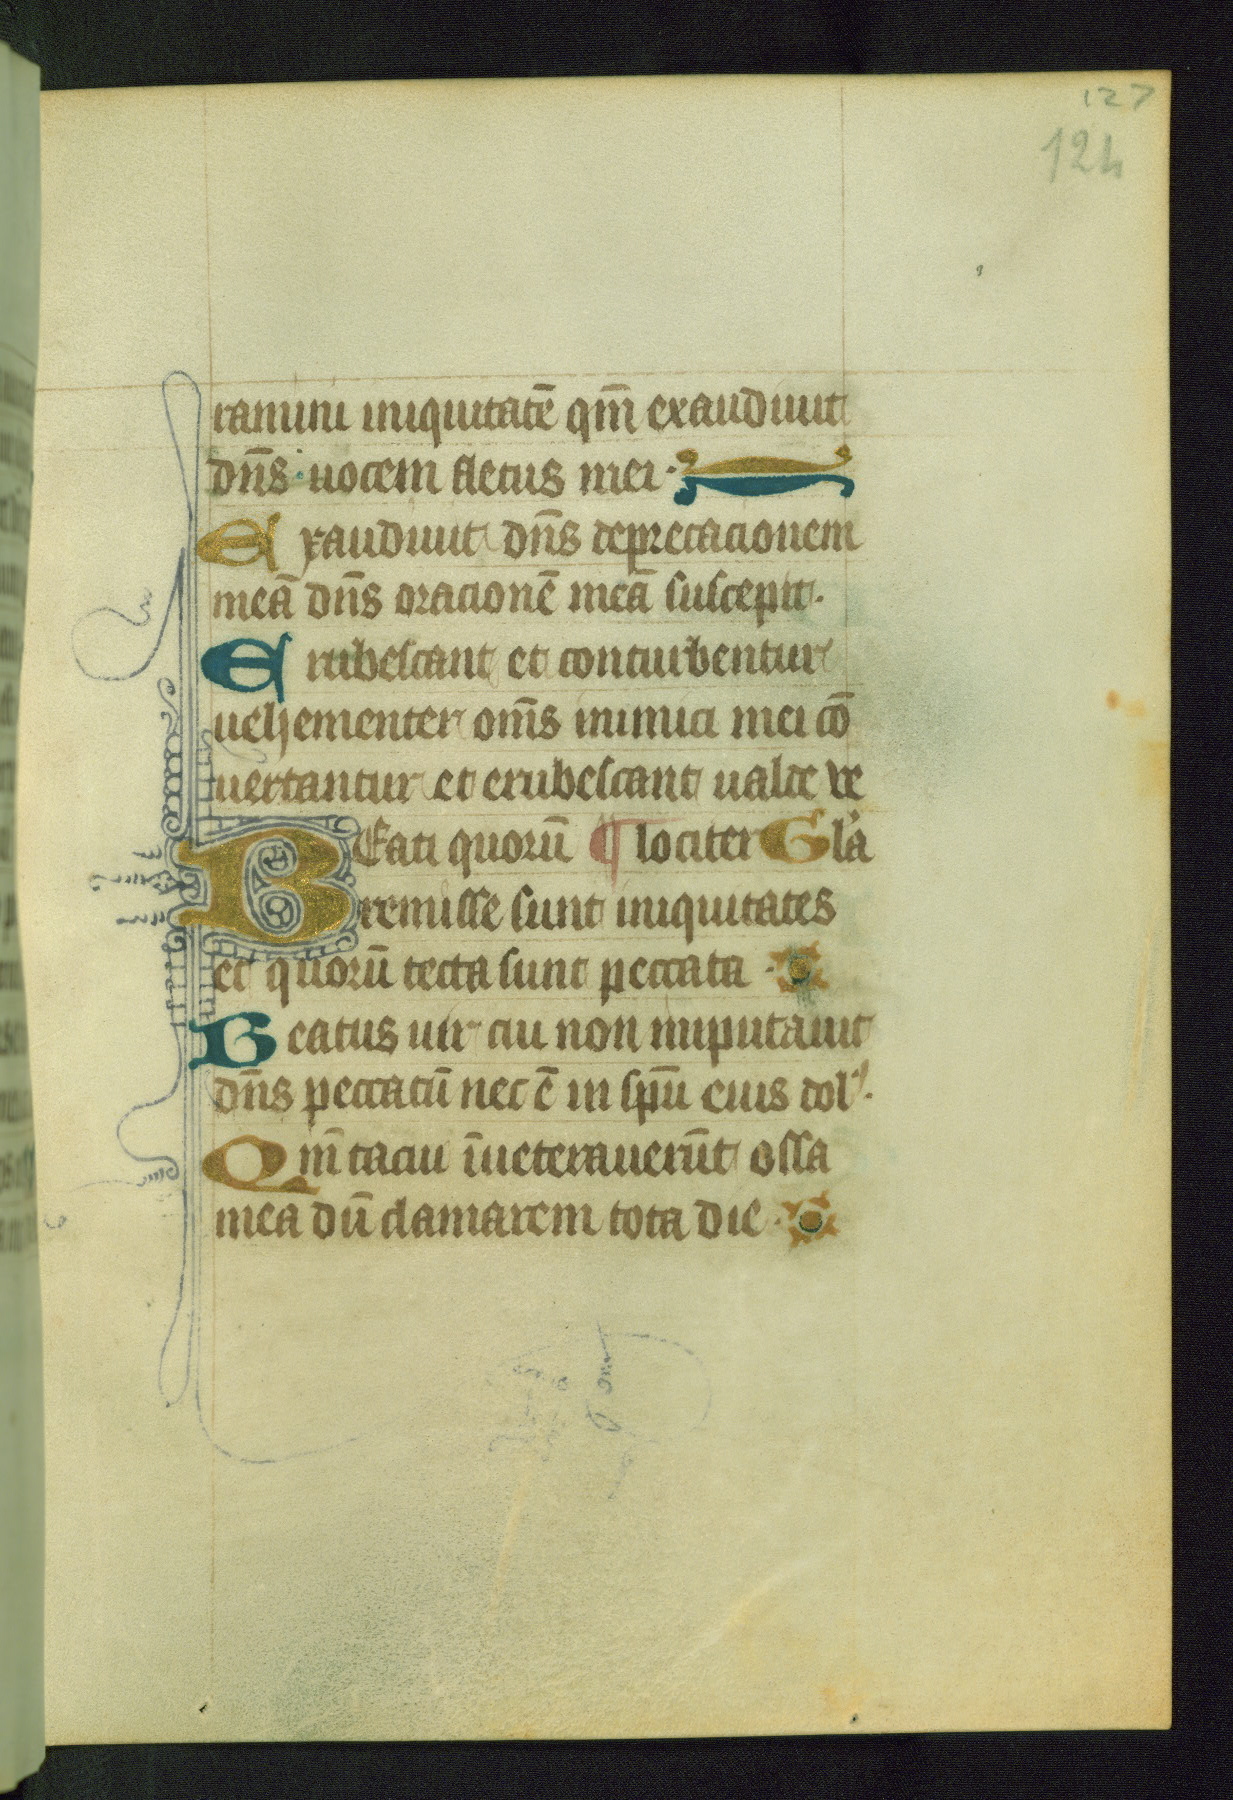 127
124
ramini iniquitatē qm̄ exaudiuit
dn̄s uocem fletus mei ·
Exaudiuit dn̄s deprecacionem
meā dn̄s oracionē meā suscepit ·
Erubescant et conturbentur
uehementer om̄s inimici mei cō
uertantur et erubescant ualde ve
Beati quorū ¶ lociter Gl'a
remisse sunt iniquitates
et quorū tecta sunt peccata ·
Beatus uir cui non imputauit
dn̄s peccatū nec ē in sp̄u eius dol⁹ ·
Qm̄ tacui īueterauerūt ossa
mea dū clamarem tota die ·